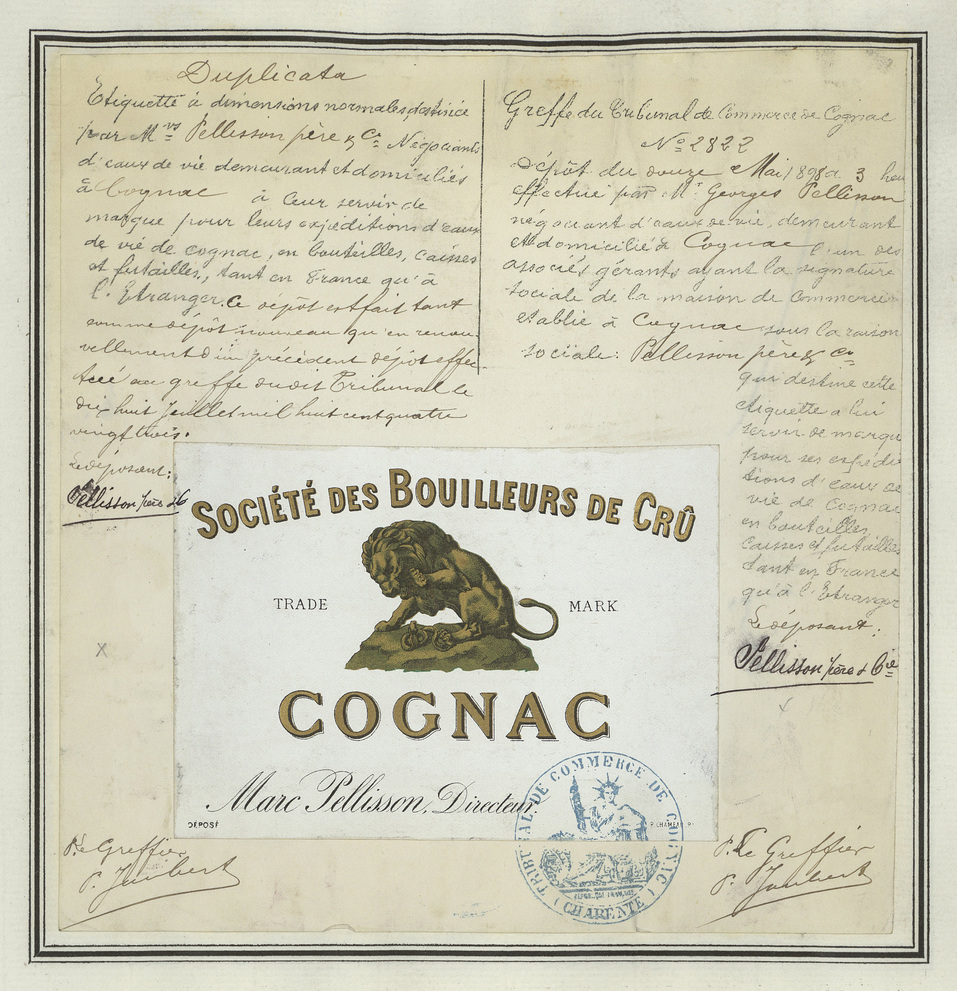 Duplicata
Etiquette à dimensions normales destinée
par Mrs Pellisson père & Co Négociants
d'eaux de vie demeurant et domiciliés
à Cognac à leur servir de
marque pour leurs expéditions d'eaux
de vie de cognac, en bouteilles, caisses
et futailles, tant en France qu'à
l'Etranger. Ce dépôt est fait tant
comme dépôt nouveau qu'en renou-
vellement d'un précédent dépôt effec
tué au greffe dudit Tribunal le
dix huit Juillet mil huit cent quatre
vingt trois.
Le déposant:
Pellisson père & Co
Greffe du Tribunal de Commerce de Cognac
No 2822
Dépôt du douze Mai 1898 à 3 heu
effectué par Mr Georges Pellisson
négociant d'eaux de vie, demeurant
et domicilié à Cognac l'un des
associés gérants ayant la signature
sociale de la maison de commerce
etablie à Cognac sous la raison
sociale: Pellisson père & Co
qui destine cette
etiquette a lui
servir de marque
pour ses expédi
tions d'eaux de
vie de Cognac
en bouteilles,
caisses et futailles
tant en France
qu'à l'Etranger
Le déposant:
Pellisson père & Cie
SOCIÉTÉ DES BOUILLEURS DE CRÛ
TRADE MARK
COGNAC
Marc Pellisson, Directeur
DÉPOSÉ
TRIBUNAL DE COMMERCE DE COGNAC
(CHARENTE)
P. Le Greffier
P. Joubert
P. Le Greffier
P. Joubert